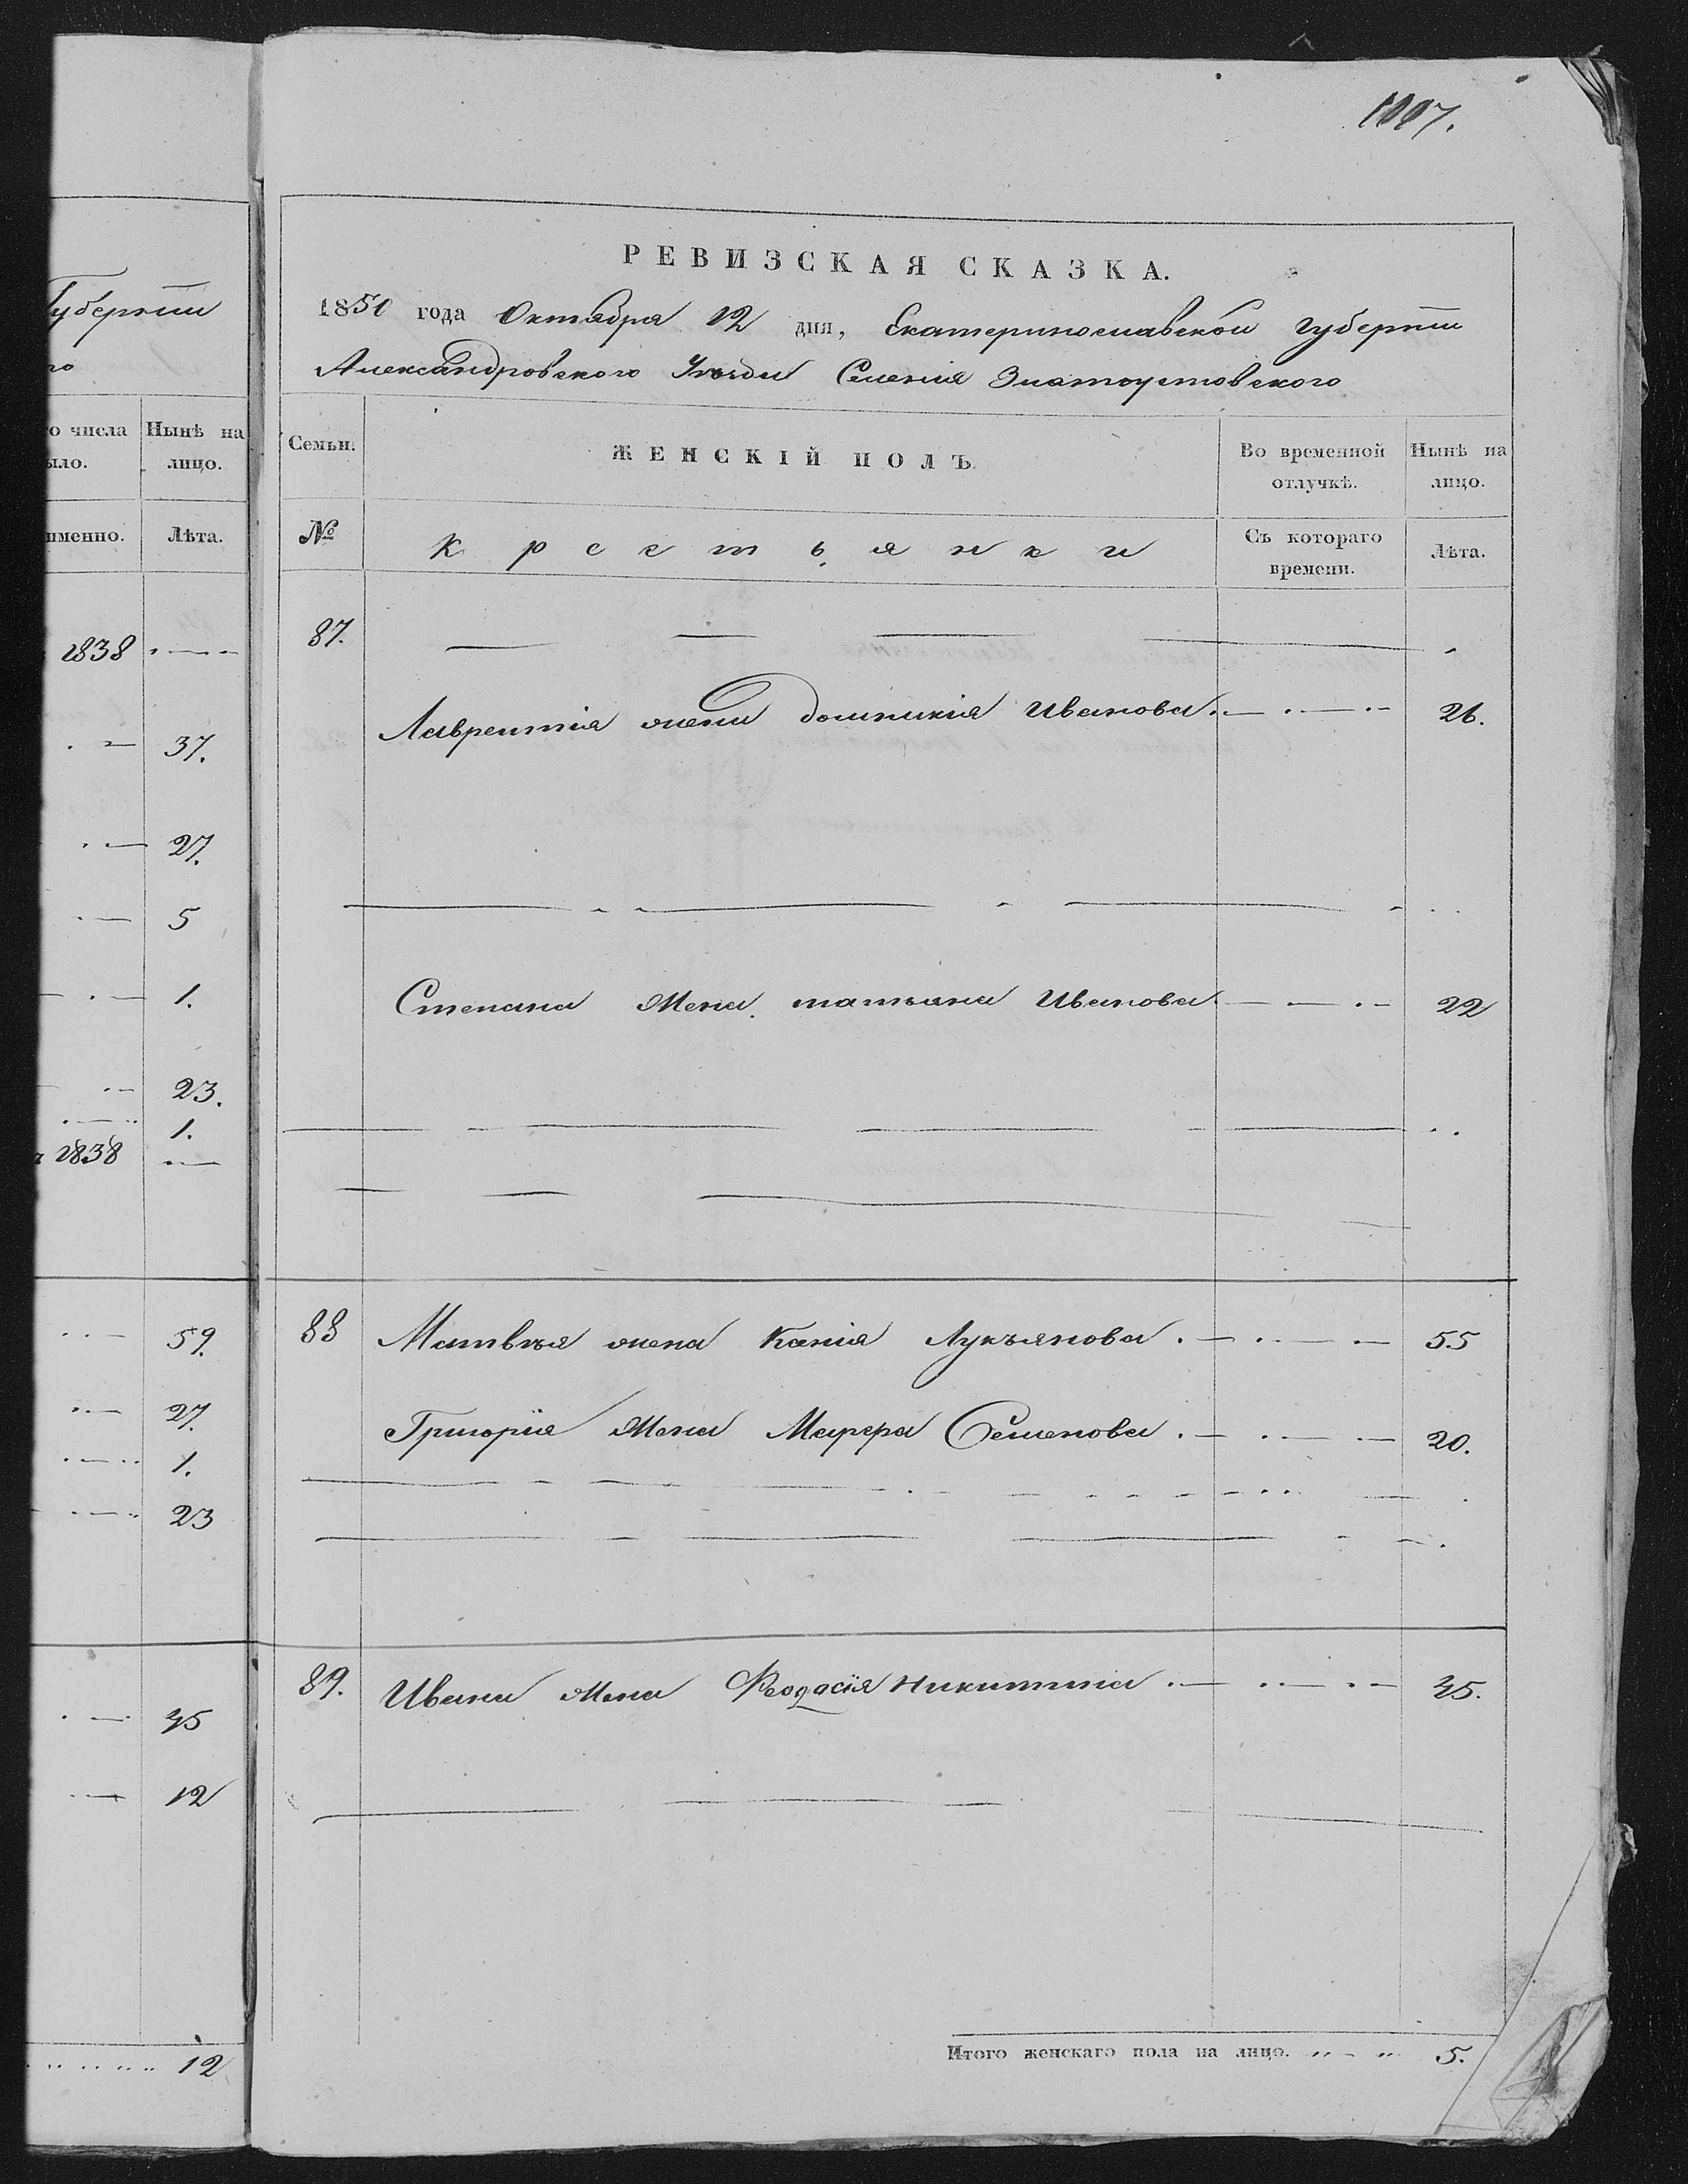 1117.
Губернiи
го
го числа Нынѣ на
ыло. лицо.
именно. Лѣта.
1838
37.
27.
5
1.
23.
1.
1838
59.
27.
1.
23
45
12
12
РЕВИЗСКАЯ СКАЗКА.
1850 года Октября 12 дня, Екатеринославской губернiи
Александровского Уѣзда Селенiя Златоустовского
Семьи. ЖЕНСКIЙ ПОЛЪ. Во временной отлучкѣ. Нынѣ на лицо.
№ Крестьянки Съ котораго времени. Лѣта.
87.
Лаврентiя жена Домникiя Иванова 26.
Степана жена татьяна Иванова 22
88 Матвѣя жена Ксенiя Лукъянова 55
Григорiя жена Марфа Семенова 20.
89. Ивана жена Феодосiя Никитина 45.
Итого женскаго пола на лицо. 5.